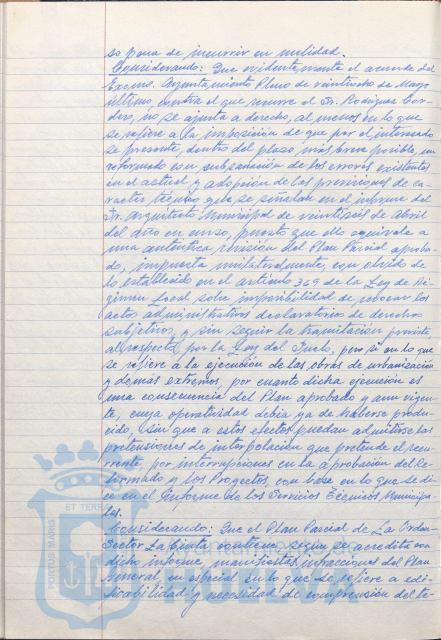 so pena de incurrir en nulidad.
Considerando: Que evidentemente el acuerdo del
Excmo. Ayuntamiento Pleno de veintiocho de Mayo
último, contra el que recurre el Sr. Rodríguez Cor-
dero, no se ajusta a derecho, al menos en lo que
se refiere a la imposición de que por el interesado
se presente, dentro del plazo más breve posible, un
reformado con subsanación de los errores existentes
en el actual y adopción de las previsiones de ca-
racter técnico que se señalan en el informe del
Sr. Arquitecto Municipal de veintiseis de abril
del año en curso, puesto que ello equivale a
una autentica revisión del Plan Parcial aproba-
do, impuesta unilateralmente, con olvido de
lo establecido en el artículo 369 de la Ley de Ré-
gimen Local sobre imposibilidad de revocar los
actos administrativos declaratorios de derechos
subjetivos, y sin seguir la tramitación prevista,
al respecto, por la Ley del Suelo, pero si en lo que
se refiere a la ejecución de las obras de urbanización
y demas extremos, por cuanto dicha ejecución es
una consecuencia del Plan aprobado y aun vigen-
te, cuya operatividad debia ya de haberse produ-
cido, sin que a estos efectos puedan admitirse las
pretensiones de interpolación que pretende el recu-
rrente, por interrupciones en la aprobación del Re-
formado y los Proyectos, con base en lo que se di-
ce en el Informe de los Servicios Técnicos Municipa-
les.
Considerando: Que el Plan Parcial de La Orden
Sector La Cinta, contiene, según se acredita con
dicho informe, manifiestas infracciones del Plan
General, en especial en lo que se refiere a edi-
ficabilidad y necesidad de comprensión del te-
PORTUS MARIS ET TERRAE
HUELVA